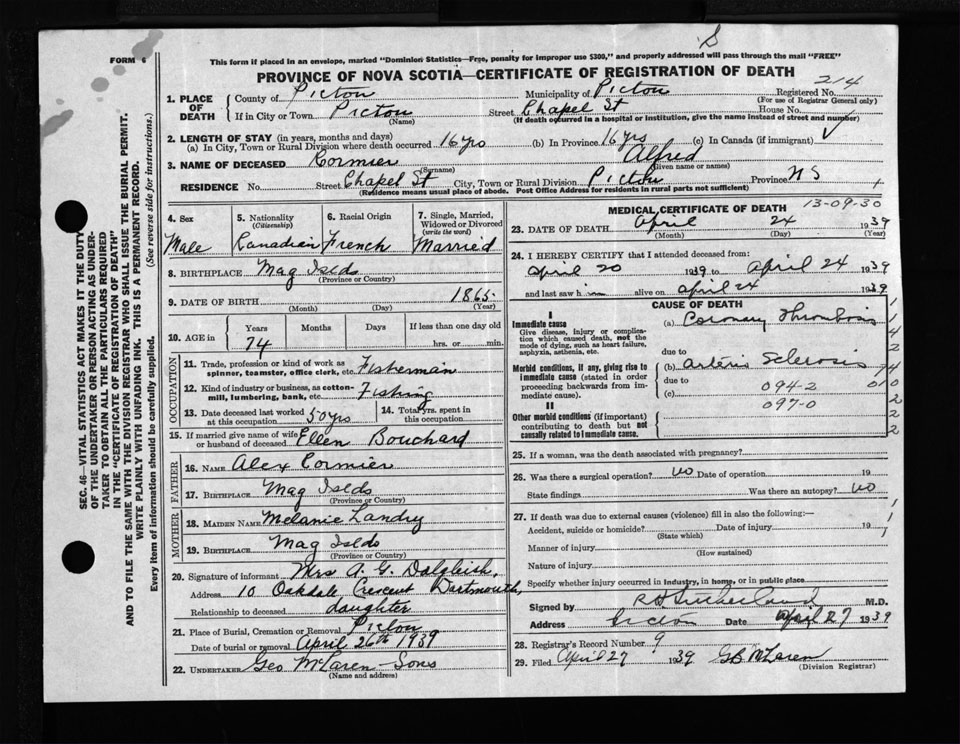 FORM 6
This form if placed in an envelope, marked "Dominion Statistics—Free, penalty for improper use $300," and properly addressed will pass through the mail "FREE"
PROVINCE OF NOVA SCOTIA—CERTIFICATE OF REGISTRATION OF DEATH
214
1. PLACE OF DEATH County of Pictou Municipality of Pictou Registered No.
(For use of Registrar General only)
If in City or Town Pictou Street Chapel St House No.
(Name) (If death occurred in a hospital or institution, give the name instead of street and number)
2. LENGTH OF STAY (in years, months and days)
(a) In City, Town or Rural Division where death occurred 16 yrs (b) In Province 16 yrs (c) In Canada (if immigrant)
3. NAME OF DECEASED Cormier Alfred
(Surname) (Given name or names)
RESIDENCE No. Street Chapel St City, Town or Rural Division Pictou Province N S
(Residence means usual place of abode. Post Office Address for residents in rural parts not sufficient)
4. Sex 5. Nationality (Citizenship) 6. Racial Origin 7. Single, Married, Widowed or Divorced (write the word)
Male Canadian French Married
8. BIRTHPLACE Mag Islds
(Province or Country)
9. DATE OF BIRTH 1865
(Month) (Day) (Year)
10. AGE in Years Months Days If less than one day old
74 hrs. or min.
OCCUPATION
11. Trade, profession or kind of work as spinner, teamster, office clerk, etc. Fisherman
12. Kind of industry or business, as cotton-mill, lumbering, bank, etc. Fishing
13. Date deceased last worked at this occupation 50 yrs 14. Total yrs. spent in this occupation
15. If married give name of wife or husband of deceased Ellen Bouchard
FATHER
16. NAME Alex Cormier
17. BIRTHPLACE Mag Islds
(Province or Country)
MOTHER
18. MAIDEN NAME Melanie Landry
19. BIRTHPLACE Mag Islds
(Province or Country)
20. Signature of informant Mrs A. G. Dalgleish
Address 10 Oakdale Crescent Dartmouth,
Relationship to deceased daughter
21. Place of Burial, Cremation or Removal Pictou
Date of burial or removal April 26th 1939
22. UNDERTAKER Geo McLaren - Sons
(Name and address)
MEDICAL CERTIFICATE OF DEATH 13-09-30
23. DATE OF DEATH April 24 1939
(Month) (Day) (Year)
24. I HEREBY CERTIFY that I attended deceased from:
April 20 1939 to April 24 1939
and last saw him alive on April 24 1939
CAUSE OF DEATH
I
Immediate cause (a) Coronary Thrombosis
Give disease, injury or complication which caused death, not the mode of dying, such as heart failure, asphyxia, asthenia, etc.
due to
Morbid conditions, if any, giving rise to immediate cause (stated in order proceeding backwards from immediate cause). (b) Arterio Sclerosis
due to 094-2
(c) 097-0
II
Other morbid conditions (if important) contributing to death but not causally related to immediate cause.
25. If a woman, was the death associated with pregnancy?
26. Was there a surgical operation? no Date of operation 19
State findings Was there an autopsy? no
27. If death was due to external causes (violence) fill in also the following:—
Accident, suicide or homicide? Date of injury 19
(State which)
Manner of injury
(How sustained)
Nature of injury
Specify whether injury occurred in industry, in home, or in public place
Signed by R H Sutherland M.D.
Address Pictou Date April 27 1939
28. Registrar's Record Number 9
29. Filed April 27 1939 G B McLaren
(Division Registrar)
SEC. 46—VITAL STATISTICS ACT MAKES IT THE DUTY
OF THE UNDERTAKER OR PERSON ACTING AS UNDER-
TAKER TO OBTAIN ALL THE PARTICULARS REQUIRED
IN THE "CERTIFICATE OF REGISTRATION OF DEATH"
AND TO FILE THE SAME WITH THE DIVISION REGISTRAR WHO SHALL ISSUE THE BURIAL PERMIT.
WRITE PLAINLY WITH UNFADING INK. THIS IS A PERMANENT RECORD.
Every item of information should be carefully supplied. (See reverse side for instructions.)